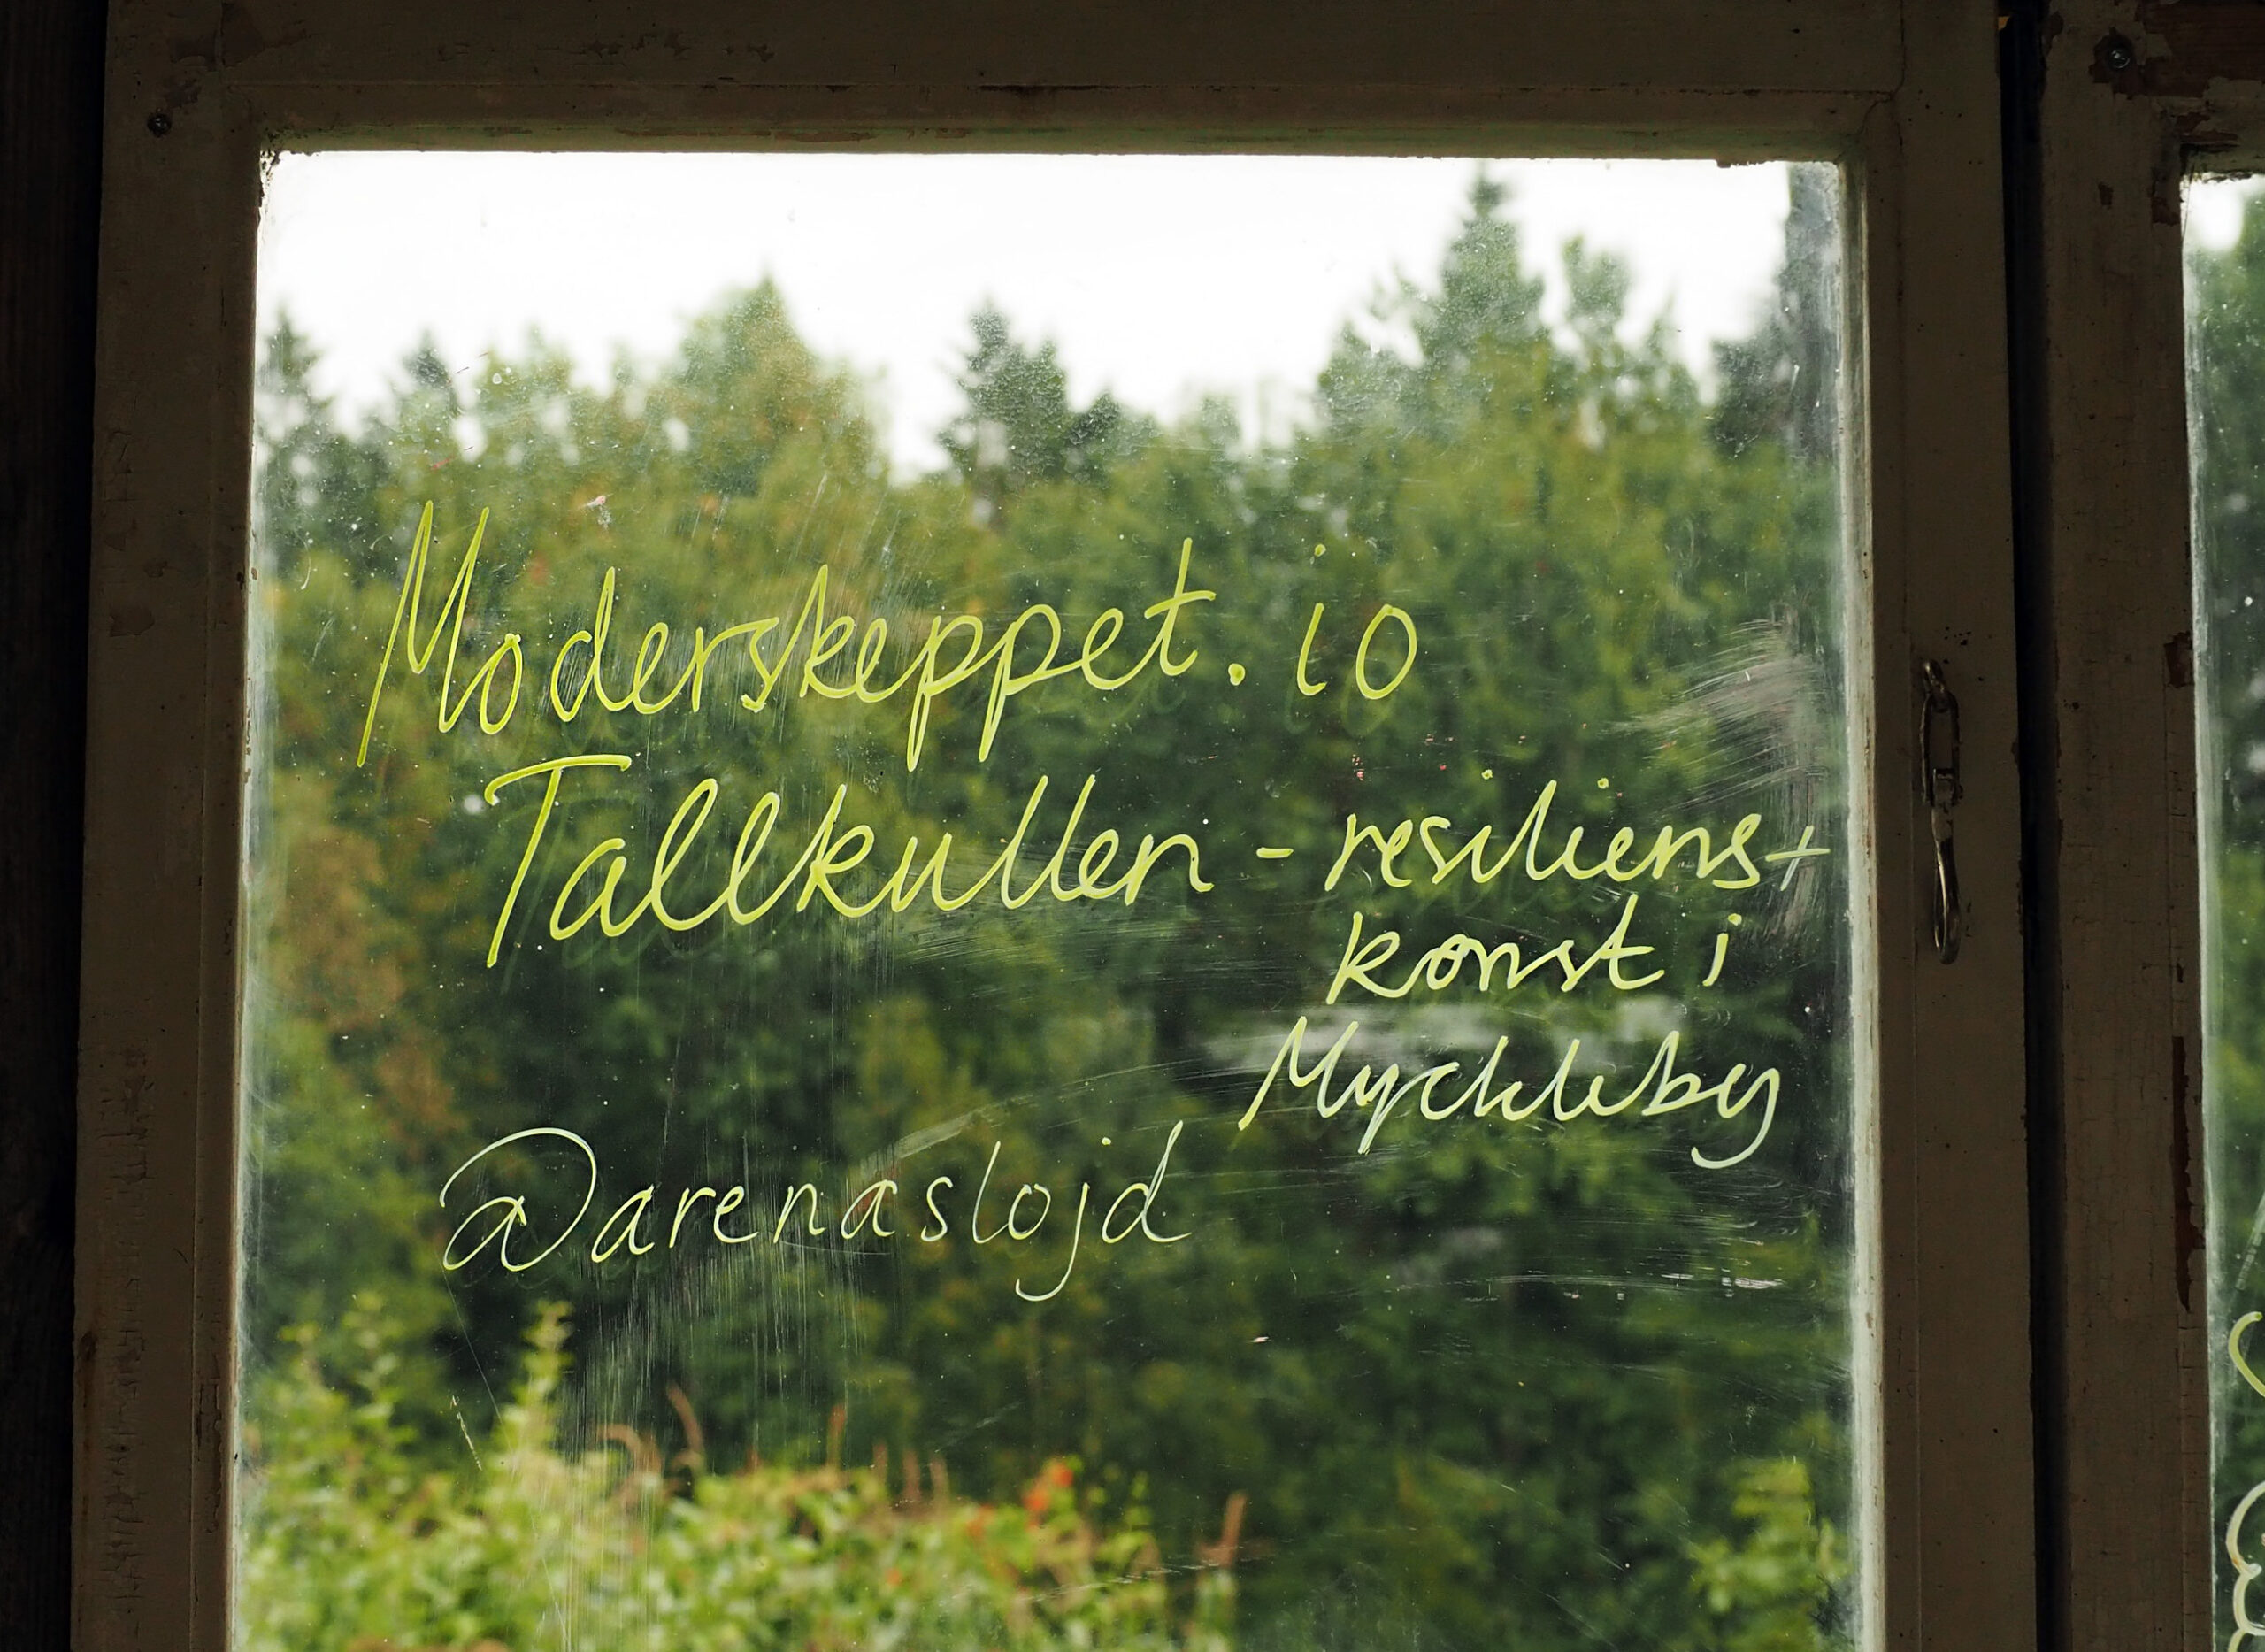 Moderskeppet.io
Tallkullen - resiliens +
konst i
Myckleby
@arenaslojd